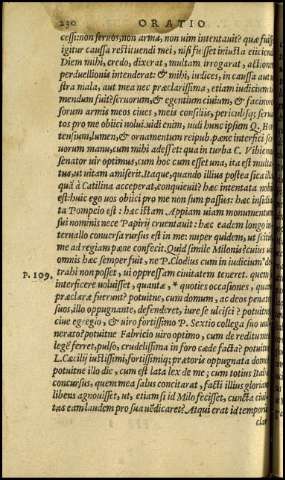 230 ORATIO
cessi: non seruos, non arma, non uim intentauit? quæ fuisset
igitur caussa restituendi mei, nisi fuisset iniusta eiiciendi?
Diem mihi, credo, dixerat, multam irrogarat, actionem
perduellionis intenderat: & mihi, iudices, in caussa aut
stra mala, aut mea nec præclarissima, etiam iudicium
mendum fuit? seruorum, & egentium ciuium, & facinoro
sorum armis meos ciues, meis consiliis, periculisq; serua
tos pro me obiici nolui. uidi enim, uidi hunc ipsum Q. Hor
tensium, lumen, & ornamentum reipub. pæne interfici ser
uorum manu, cum mihi adesset: qua in turba C. Vibienus
senator uir optimus, cum hoc cum esset una, ita est mulca
tus, ut uitam amiserit. Itaque, quando illius postea sica illa,
quā à Catilina acceperat, conquieuit? hæc intentata nobis
est: huic ego uos obiici pro me non sum passus: hæc insidia
ta Pompeio est: hæc istam Appiam uiam monumentum
sui nominis nece Papirij cruentauit: hæc eadem longo in
teruallo conuersa rursus est in me: nuper quidem, ut scitis,
me ad regiam pæne confecit. Quid simile Milonis? cuius uis
omnis hæc semper fuit, ne P. Clodius cum in iudicium de
P. 109. trahi non posset, ui oppressam ciuitatem teneret. quem
interficere uoluisset, quantæ, * quoties occasiones, quam
præclaræ fuerunt? potuitne, cum domum, ac deos penates
suos, illo oppugnante, defenderet, iure se ulcisci? potuitne
ciue egregio, & uiro fortissimo P. Sextio collega suo uul
nerato? potuitne Fabricio uiro optimo, cum de reditu meo
legē ferret, pulso, crudelissima in foro cæde facta? potuitne
L. Cæcilii iustissimi, fortissimiq; prætoris oppugnata domo?
potuitne illo die, cum est lata lex de me; cum totius Italiæ
concursus, quem mea salus concitarat, facti illius gloriam
libens agnouisset, ut, etiam si id Milo fecisset, cuncta ciui
tas eam laudem pro sua uēdicaret? Atqui erat id temporis
clar